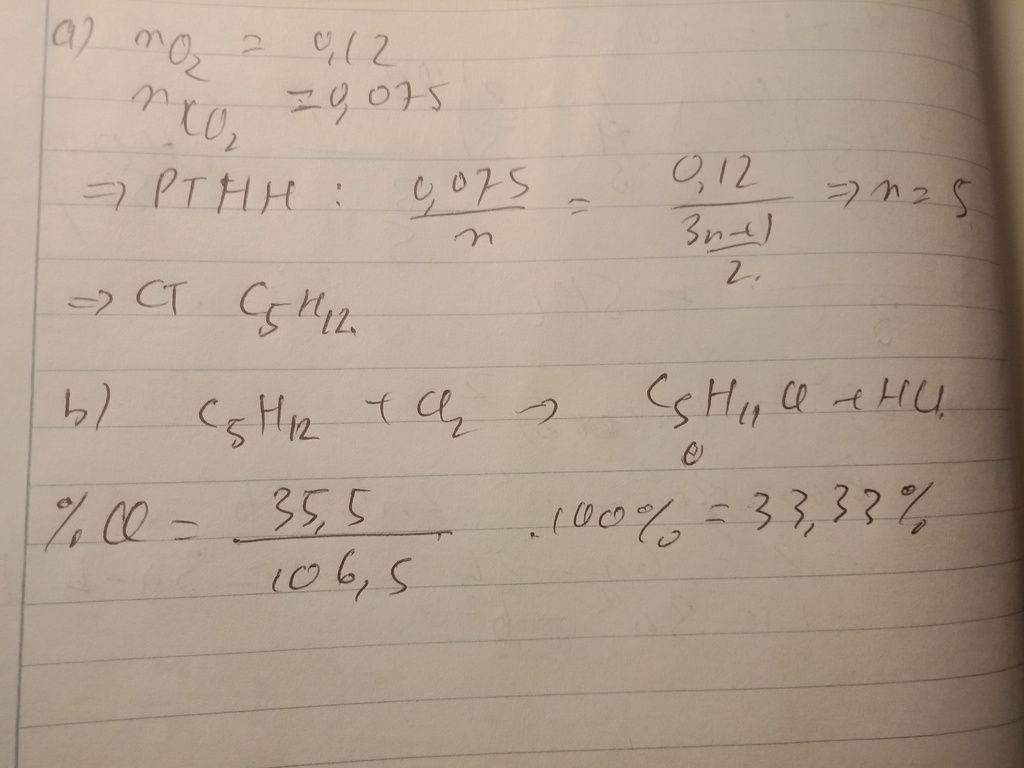 a) nO2 = 0,12
nCO2 = 0,075
=> PTHH : 0,075/n = 0,12/((3n+1)/2) => n = 5
=> CT C5H12.
b) C5H12 + Cl2 -> C5H11Cl + HCl.
%Cl = 35,5/106,5 .100% = 33,33%